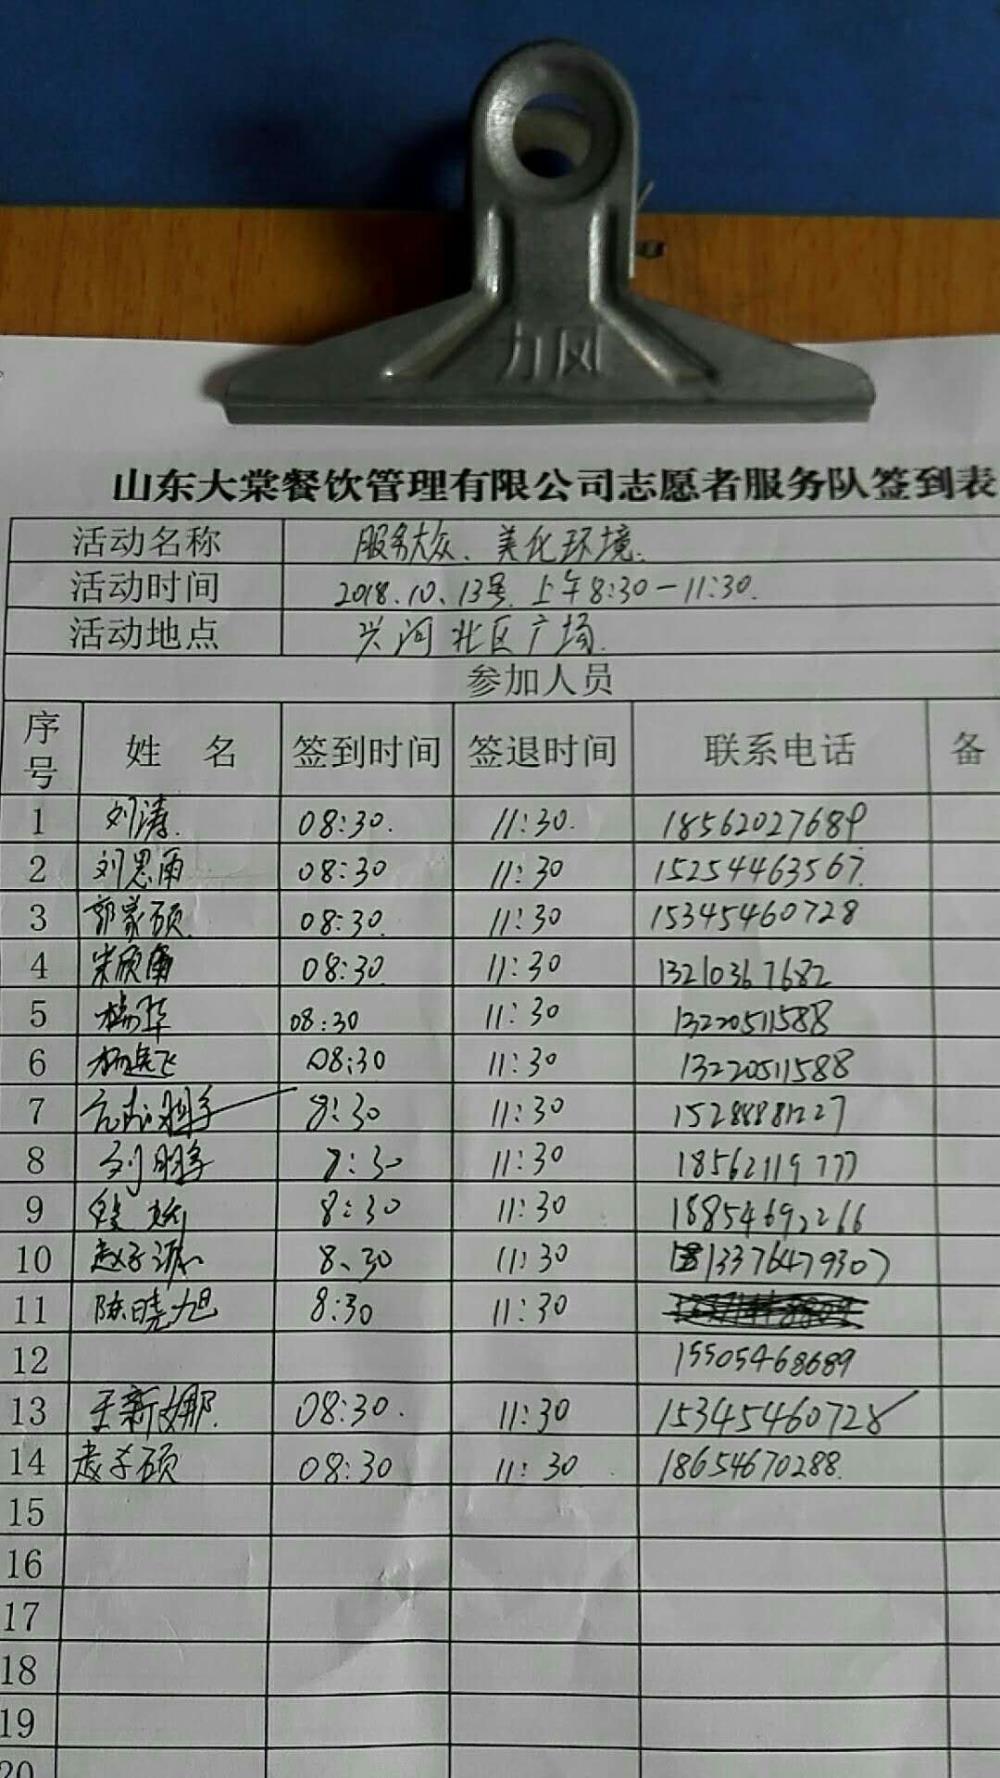 力风
山东大棠餐饮管理有限公司志愿者服务队签到表
活动名称 服务大众、美化环境.
活动时间 2018.10、13号.上午8:30-11:30.
活动地点 兴河北区广场.
参加人员
序号 姓 名 签到时间 签退时间 联系电话 备
1 刘涛. 08:30. 11:30. 18562027689
2 刘思雨 08:30 11:30 15254463567.
3 郭家硕. 08:30. 11:30 15345460728
4 宋欣雨 08:30. 11:30 13210367682
5 杨华 08:30 11:30 13220511588
6 杨延飞 08:30 11:30 13220511588
7 8:30 11:30 15288881227
8 刘鹏宇 8:30 11:30 18562119777
9 8:30 11:30 18854692266
10 赵子源 8、30 11:30 13376479307
11 陈晓旭 8:30 11:30
12 15505468689
13 王新娜. 08:30. 11:30 15345460728
14 袁子硕 08:30 11:30 18654670288.
15
16
17
18
19
20